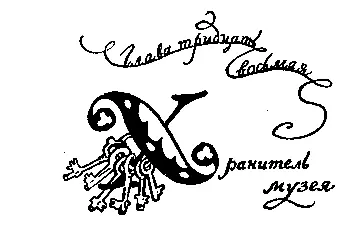 Глава тридцать восьмая
Хранитель
музея